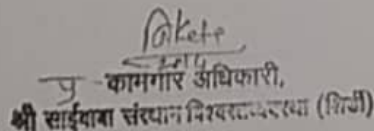 प्र - कामगार अधिकारी,
श्री साईबाबा संस्थान विश्वस्तव्यवस्था (शिर्डी)